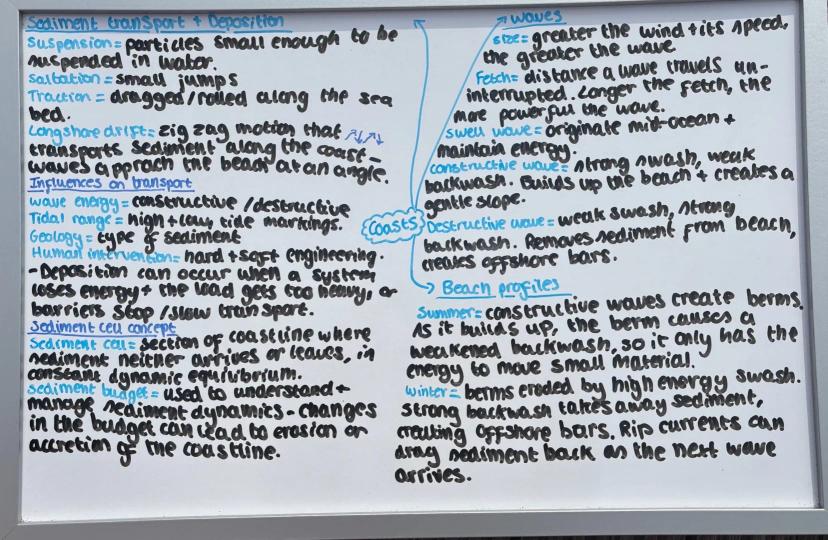 Sediment transport + Deposition
Suspension = particles small enough to be
suspended in water.
Saltation = small jumps
Traction = dragged/rolled along the sea
bed.
Longshore drift = zig zag motion that
transports sediment along the coast -
waves approach the beach at an angle.
Influences on transport
wave energy = constructive / destructive
Tidal range = high + low tide markings.
Geology = type of sediment
Human intervention = hard + soft engineering.
- Deposition can occur when a system
loses energy + the load gets too heavy, or
barriers stop / slow transport.
Sediment cell concept
Sediment cell = section of coastline where
sediment neither arrives or leaves, in
constant dynamic equilibrium.
Sediment budget = used to understand +
manage sediment dynamics - changes
in the budget can lead to erosion or
accretion of the coastline.
Coasts
waves
size = greater the wind + its speed,
the greater the wave
Fetch = distance a wave travels un-
interrupted. Longer the fetch, the
more powerful the wave.
swell wave = originate mid-ocean +
maintain energy.
constructive wave = strong swash, weak
backwash. Builds up the beach + creates a
gentle slope.
Destructive wave = weak swash, strong
backwash. Removes sediment from beach,
creates offshore bars.
Beach profiles
Summer = constructive waves create berms.
As it builds up, the berm causes a
weakened backwash, so it only has the
energy to move small material.
winter = berms eroded by high energy swash.
strong backwash takes away sediment,
creating offshore bars. Rip currents can
drag sediment back as the next wave
arrives.